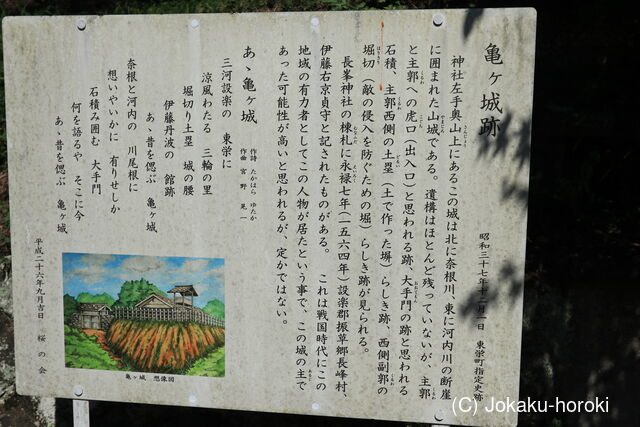 亀ヶ城跡
昭和三十七年十二月一日 東栄町指定史跡
神社左手奥山上にあるこの城は北に奈根川、東に河内川の断崖
に囲まれた山城である。遺構はほとんど残っていないが、主郭
と主郭への虎口(出入口)と思われる跡、大手門の跡と思われる
石積、主郭西側の土塁(土で作った塀)らしき跡、西側副郭の
堀切(敵の侵入を防ぐための堀)らしき跡が見られる。
長峯神社の棟札に永禄七年(一五六四年)設楽郡振草郷長峰村、
伊藤右京貞守と記されたものがある。 これは戦国時代にこの
地域の有力者としてこの人物が居たという事で、この城の主で
あった可能性が高いと思われるが、定かではない。
あゝ亀ヶ城
作詩 たかはら ゆたか
作曲 宮野 晃一
三河設楽の 東栄に
涼風わたる 三輪の里
堀切り土塁 城の腰
伊藤丹波の 館跡
あゝ昔を偲ぶ 亀ヶ城
奈根と河内の 川尾根に
想いやいかに 有りせしか
石積み囲む 大手門
何を語るや そこに今
あゝ昔を偲ぶ 亀ヶ城
平成二十六年九月吉日 桜の会
亀ヶ城 想像図
(C) Jokaku-horoki